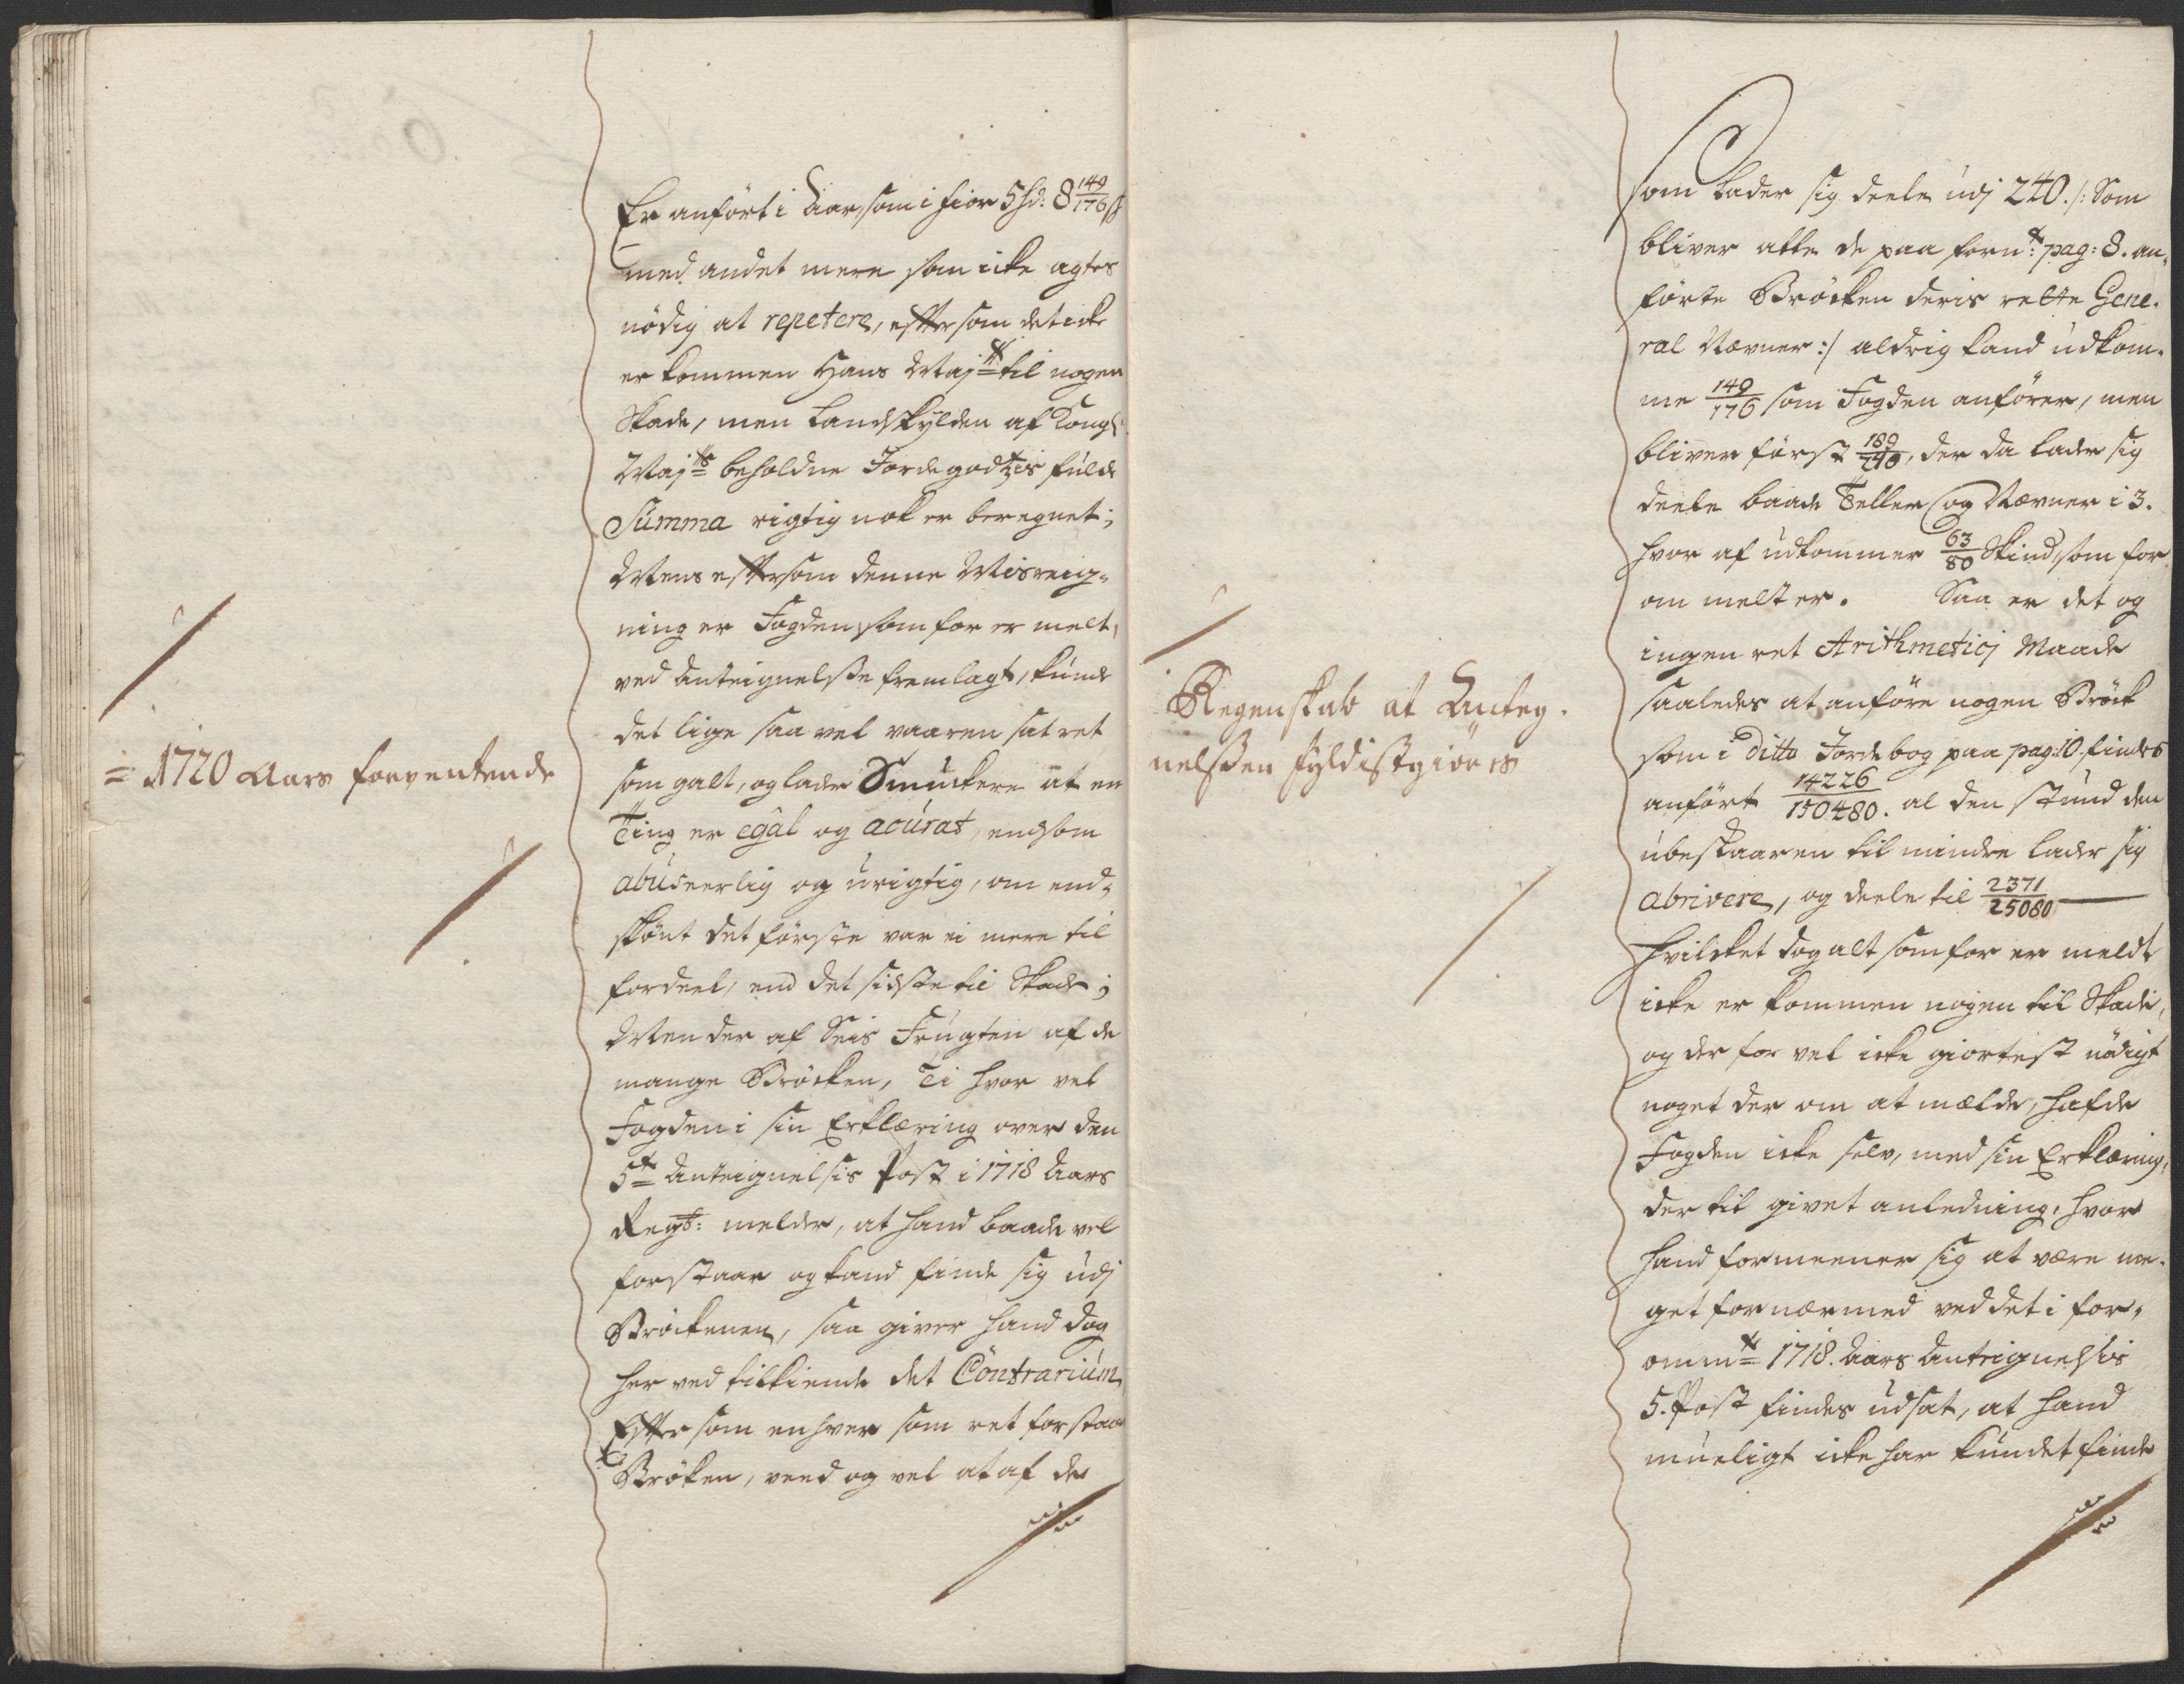 = 1720 Aars forventende
Er anført i Aar, som i fior 5 hd: 8 149/176 s
med andet mere som icke agtes
nödig at repetere, effter som det icke
er kommen Hans Maj:tt til nogen
Skade, men Landskylden af Kongl:
Maj:ts beholdne Jordegodtzis fulde
Summa rigtig nok er beregnet;
Mens effter som denne Misreig-
ning er Fogden, som for er melt,
ved Anteignelsße fremlagt, kunde
det lige saa vel vaaren sat ret
som galt, og lader Smuckere at en
Ting er egal og acurat, end som
abuseerlig og urigtig, om end-
skönt det förste var ei mere til
fordeel, end det sidste til Skade;
Men der af Seis Frugten af de
mange Bröcken, Ti hvor vel
Fogden i sin Erklæring over den
5te Anteignelsis Post i 1718 Aars
Regsb: melder, at hand baade vel
forstaar og kand finde sig udj
Bröckenen, saa giver hand dog
her ved tilkiende det Contrarium,
Effter som en hver som ret forstaar
Bröken, veed og vel at af de
Regenskab at Anteg-
nelsßen fyldistgiøres
som Lader sig deele udj 240 ./: Som
bliver alle de paa forn:te pag: 8. an-
förte Bröcken deris rette Gene-
ral Nævner :/ aldrig kand udkom-
me 149/176 som Fogden anförer, men
bliver först 189/240, der da lader sig
deele baade Teller og Nævner i 3.
hvor af udkommer 63/80 Skind, som for
om melt er. Saa er det og
ingen ret Arithmeticj Maade
saaledes at anföre nogen Bröck
som i ditto Jordebog paa pag: 10 findes
anfört 14226/150480. al den stund den
ubeskaaren til mindre lader sig
abrivere, og deele til 2371/25080
hvilcket dog alt som for er meldt
icke er kommen nogen til Skade,
og der for vel icke giortest nödigt
noget der om at melde, hafde
Fogden icke selv, med sin Erklæring,
der til givet anledning, hvor
hand formeener sig at være me-
get fornærmed ved det i for-
ommte 1718. Aars Anteignelsis
5. Post findes udsat, at hand
mueligt icke har kundet finde